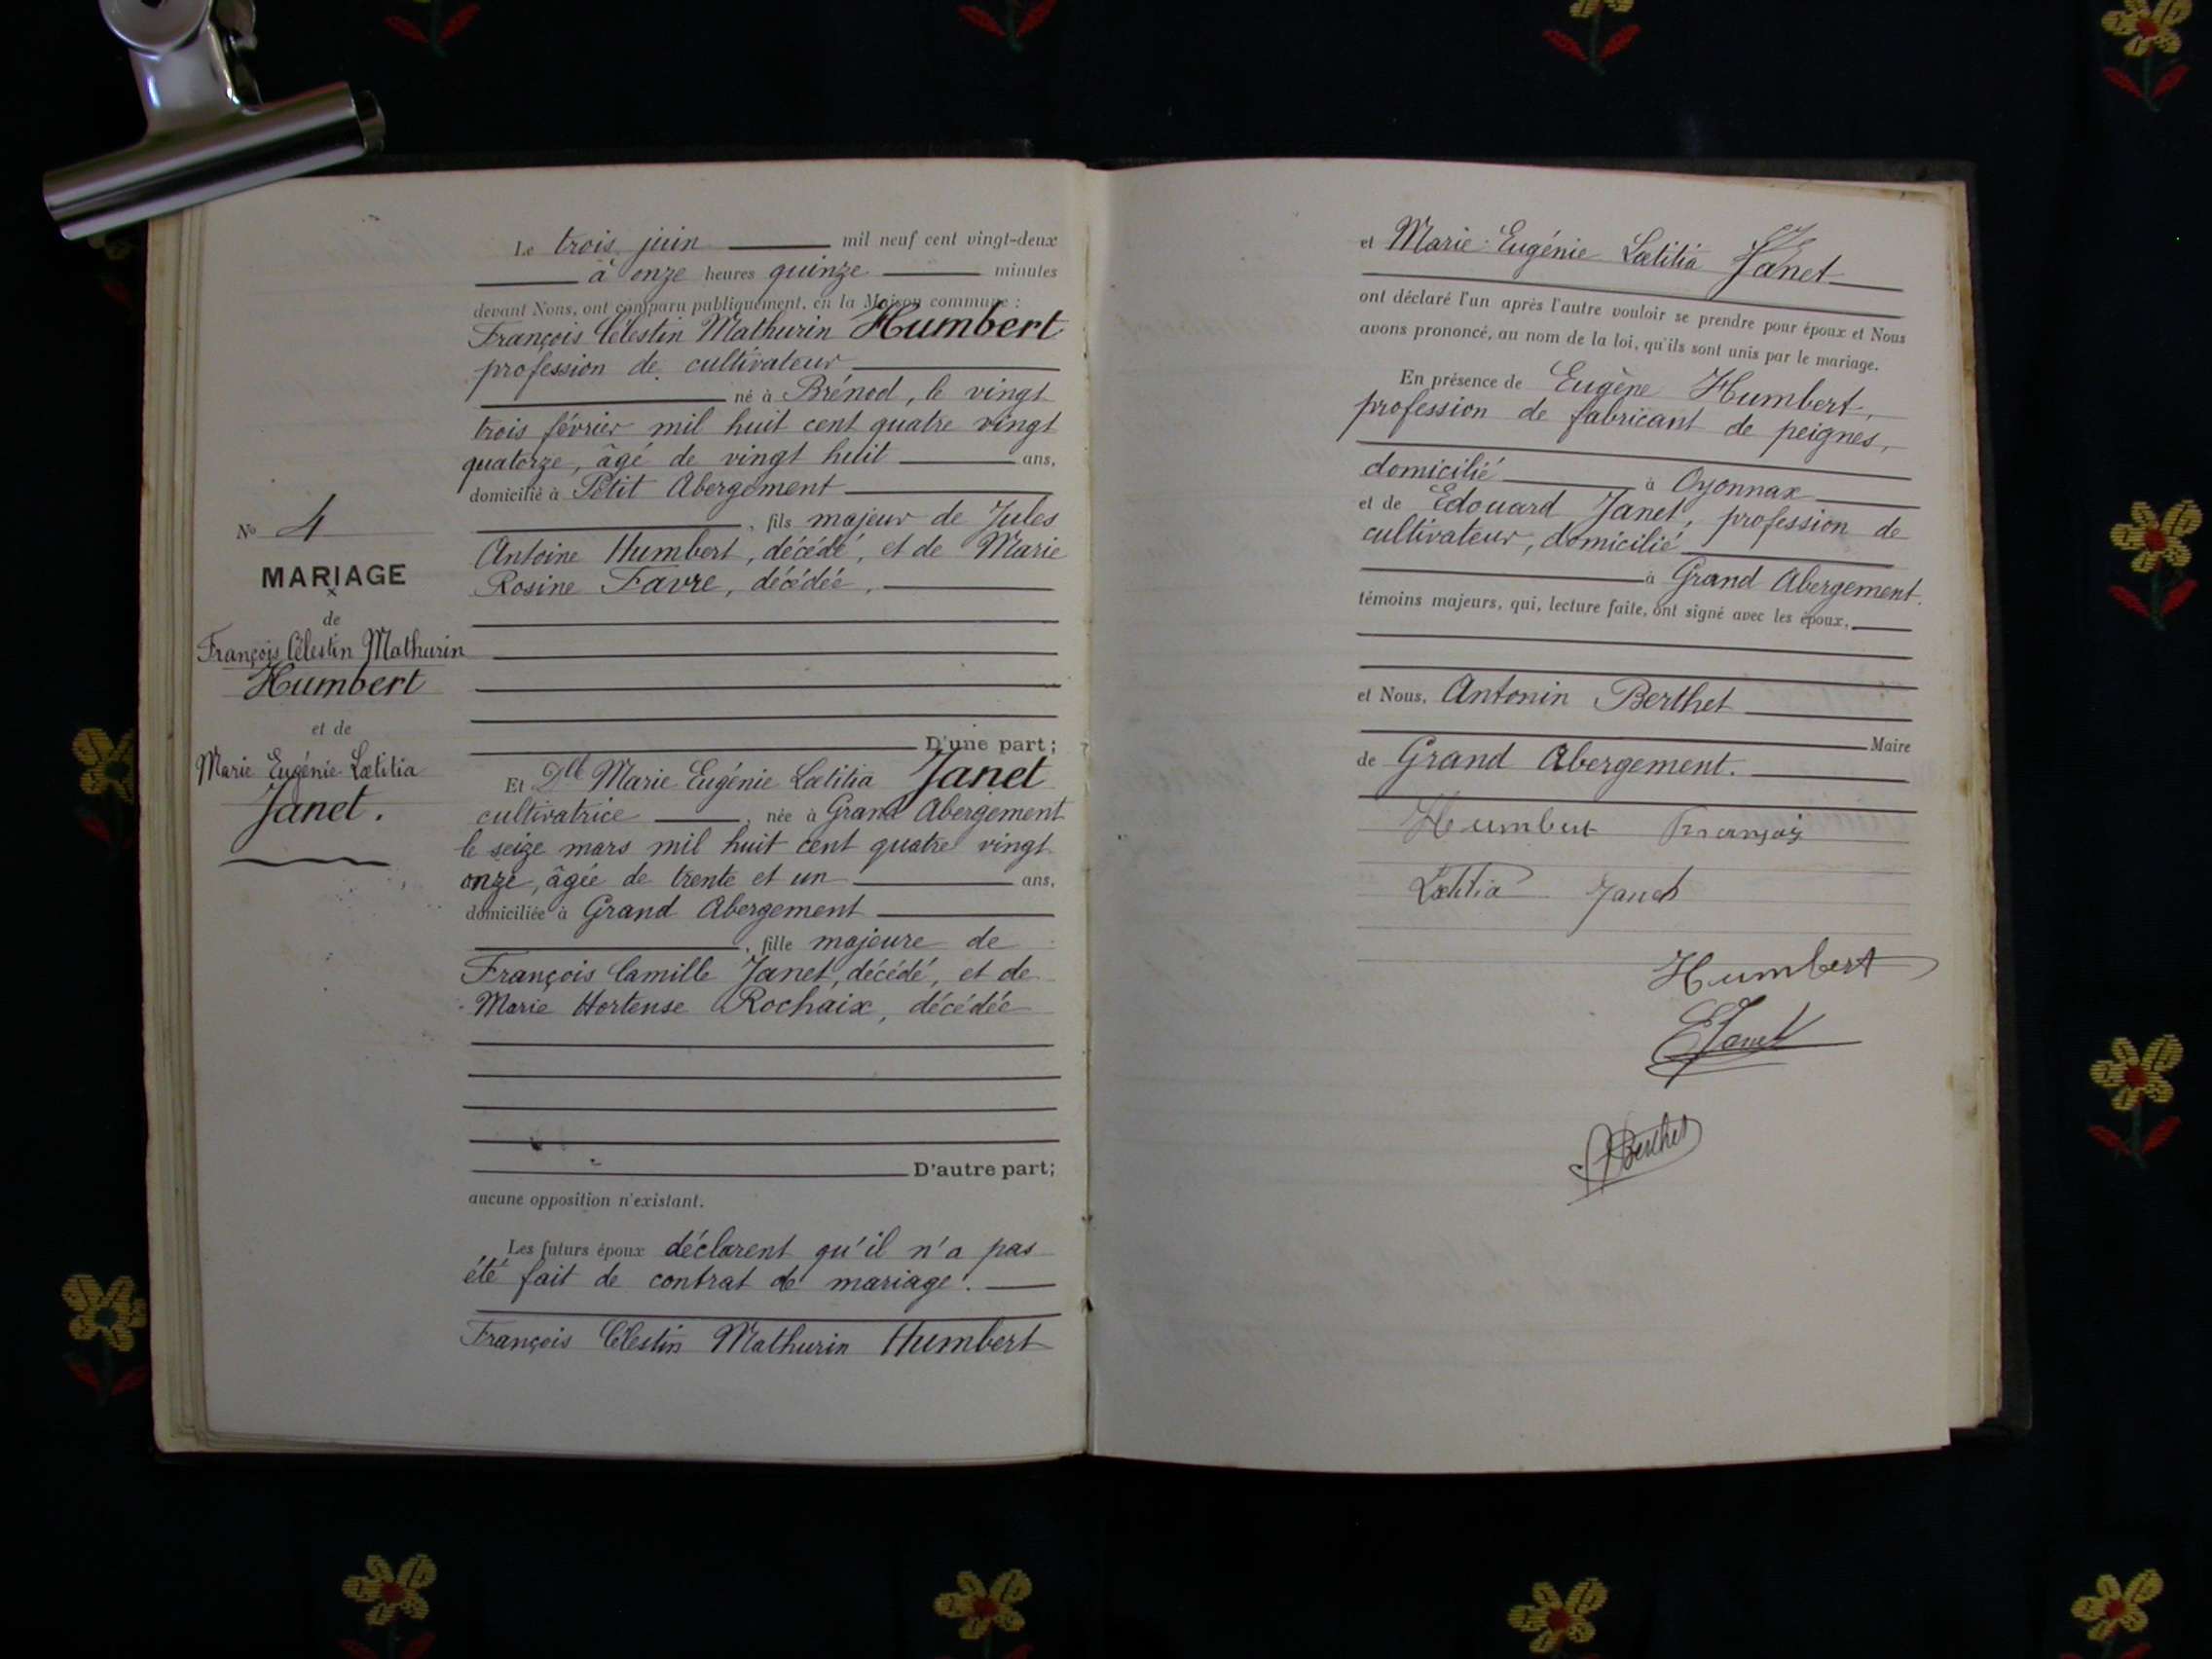 N° 4
MARIAGE
de
François Célestin Mathurin
Humbert
et de
Marie Eugénie Lœtitia
Janet.
Le trois juin mil neuf cent vingt-deux
à onze heures quinze minutes
devant Nous, ont comparu publiquement, en la Maison commune :
François Célestin Mathurin Humbert
profession de cultivateur
né à Brénod, le vingt
trois février mil huit cent quatre vingt
quatorze, âgé de vingt huit ans,
domicilié à Petit Abergement
, fils majeur de Jules
Antoine Humbert, décédé, et de Marie
Rosine Favre, décédée,
D'une part;
Et Dlle Marie Eugénie Lœtitia Janet
cultivatrice, née à Grand Abergement
le seize mars mil huit cent quatre vingt
onze, âgée de trente et un ans,
domiciliée à Grand Abergement
, fille majeure de
François Camille Janet, décédé, et de
Marie Hortense Rochaix, décédée
D'autre part;
aucune opposition n'existant.
Les futurs époux déclarent qu'il n'a pas
été fait de contrat de mariage.
François Célestin Mathurin Humbert
et Marie Eugénie Lœtitia Janet
ont déclaré l'un après l'autre vouloir se prendre pour époux et Nous
avons prononcé, au nom de la loi, qu'ils sont unis par le mariage.
En présence de Eugène Humbert,
profession de fabricant de peignes,
domicilié à Oyonnax
et de Edouard Janet, profession de
cultivateur, domicilié
à Grand Abergement.
témoins majeurs, qui, lecture faite, ont signé avec les époux,
et Nous, Antonin Berthet
Maire
de Grand Abergement.
Humbert François
Lœtitia Janet
Humbert
E Janet
A Berthet